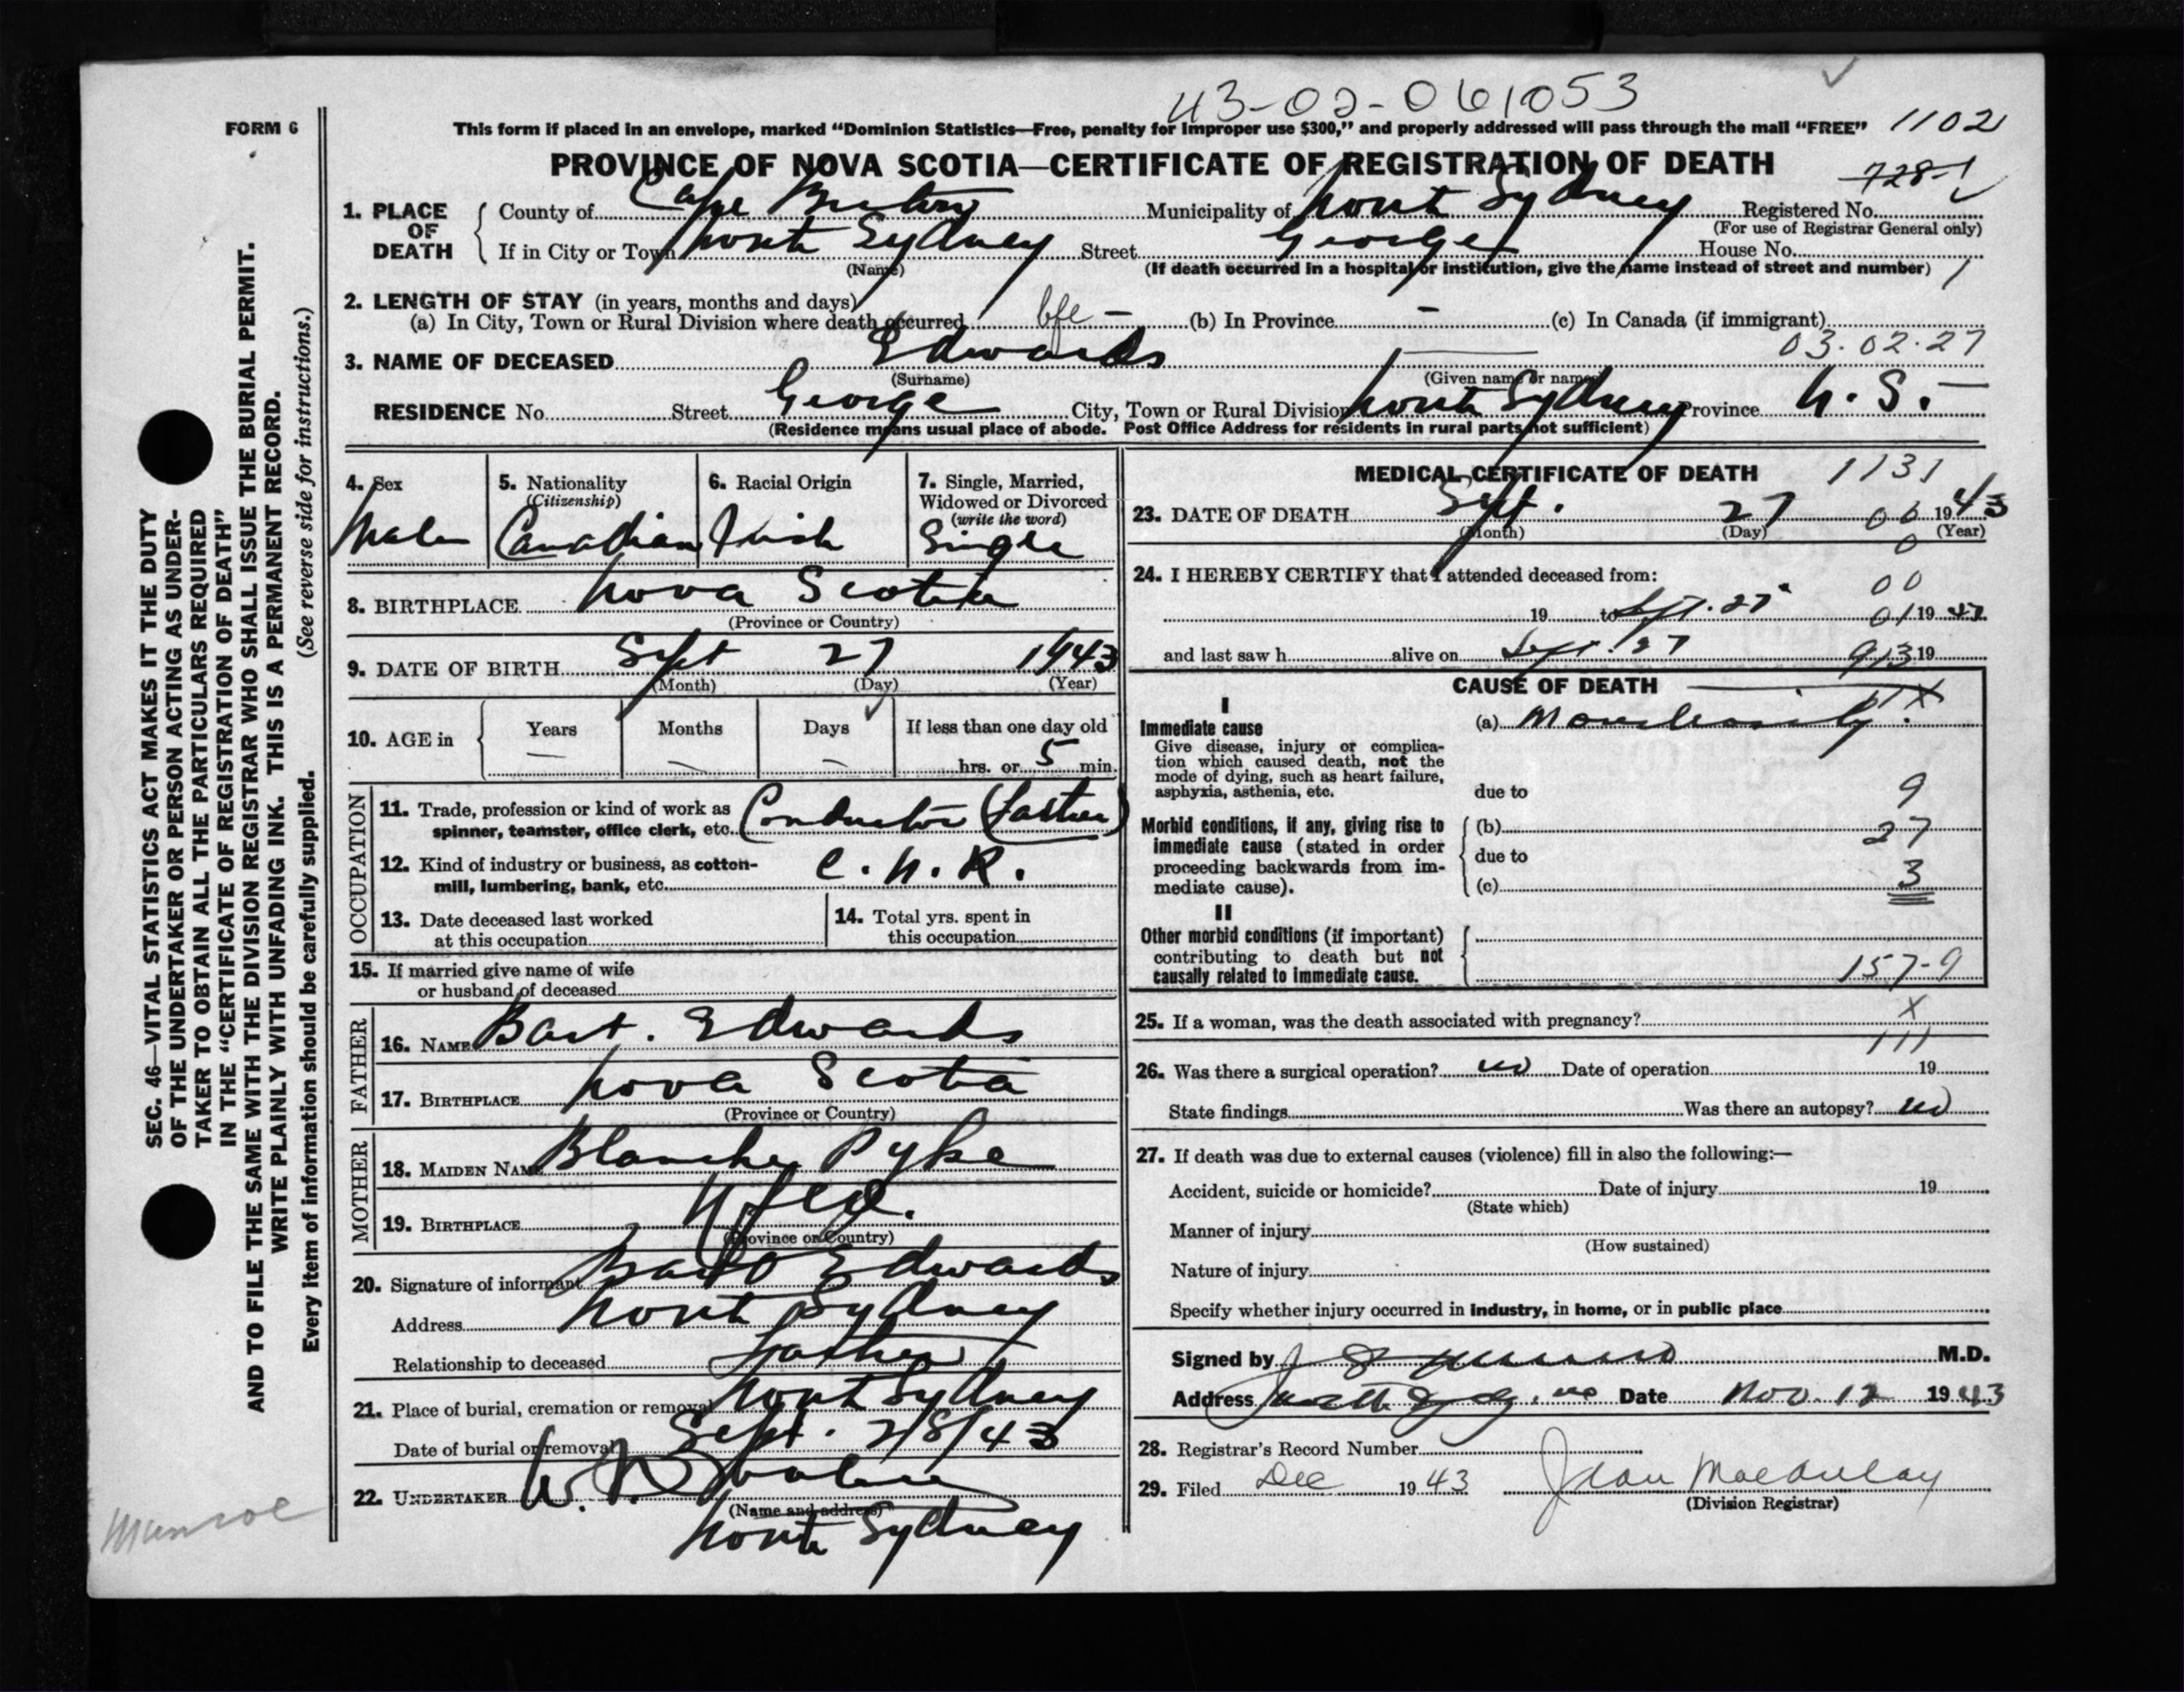 43-02-061053
FORM 6
This form if placed in an envelope, marked “Dominion Statistics—Free, penalty for improper use $300,” and properly addressed will pass through the mail “FREE” 1102
PROVINCE OF NOVA SCOTIA—CERTIFICATE OF REGISTRATION OF DEATH
728-1
1. PLACE OF DEATH
County of Cape Breton Municipality of North Sydney Registered No.
(For use of Registrar General only)
If in City or Town North Sydney Street George House No.
(Name) (If death occurred in a hospital or institution, give the name instead of street and number) 1
2. LENGTH OF STAY (in years, months and days)
(a) In City, Town or Rural Division where death occurred life — (b) In Province — (c) In Canada (if immigrant)
03.02.27
3. NAME OF DECEASED Edwards —
(Surname) (Given name or names)
RESIDENCE No. Street George City, Town or Rural Division North Sydney Province N. S. —
(Residence means usual place of abode. Post Office Address for residents in rural parts not sufficient)
4. Sex
Male
5. Nationality
(Citizenship)
Canadian
6. Racial Origin
Irish
7. Single, Married,
Widowed or Divorced
(write the word)
Single
8. BIRTHPLACE Nova Scotia
(Province or Country)
9. DATE OF BIRTH Sept 27 1943
(Month) (Day) (Year)
10. AGE in
Years Months Days If less than one day old
— — — hrs. or 5 min.
OCCUPATION
11. Trade, profession or kind of work as
spinner, teamster, office clerk, etc. Conductor (Father)
12. Kind of industry or business, as cotton-
mill, lumbering, bank, etc. C. N. R.
13. Date deceased last worked
at this occupation
14. Total yrs. spent in
this occupation
15. If married give name of wife
or husband of deceased
FATHER
16. NAME Bart. Edwards
17. BIRTHPLACE Nova Scotia
(Province or Country)
MOTHER
18. MAIDEN NAME Blanche Pyke
19. BIRTHPLACE Nfld.
(Province or Country)
20. Signature of informant Bart Edwards
Address North Sydney
Relationship to deceased Father
21. Place of burial, cremation or removal North Sydney
Date of burial or removal Sept. 28/43
22. UNDERTAKER W.
(Name and address)
North Sydney
MEDICAL CERTIFICATE OF DEATH 1131
23. DATE OF DEATH Sept. 27 1943
(Month) (Day) (Year)
06
0
24. I HEREBY CERTIFY that I attended deceased from:
00
19 to Sept. 27 01 1943
and last saw h alive on Sept. 27 913 19
CAUSE OF DEATH
I
Immediate cause
Give disease, injury or complica-
tion which caused death, not the
mode of dying, such as heart failure,
asphyxia, asthenia, etc.
(a)
due to 9
Morbid conditions, if any, giving rise to
immediate cause (stated in order
proceeding backwards from im-
mediate cause).
(b) 27
due to
(c) 3
II
Other morbid conditions (if important)
contributing to death but not
causally related to immediate cause.
157-9
25. If a woman, was the death associated with pregnancy? X
111
26. Was there a surgical operation? no Date of operation 19
State findings Was there an autopsy? no
27. If death was due to external causes (violence) fill in also the following:—
Accident, suicide or homicide? Date of injury 19
(State which)
Manner of injury
(How sustained)
Nature of injury
Specify whether injury occurred in industry, in home, or in public place
Signed by M.D.
Address North Sydney, NS Date Nov. 12 1943
28. Registrar's Record Number
29. Filed Dec 1943 Jean MacAulay
(Division Registrar)
SEC. 46—VITAL STATISTICS ACT MAKES IT THE DUTY
OF THE UNDERTAKER OR PERSON ACTING AS UNDER-
TAKER TO OBTAIN ALL THE PARTICULARS REQUIRED
IN THE “CERTIFICATE OF REGISTRATION OF DEATH”
AND TO FILE THE SAME WITH THE DIVISION REGISTRAR WHO SHALL ISSUE THE BURIAL PERMIT.
WRITE PLAINLY WITH UNFADING INK. THIS IS A PERMANENT RECORD.
Every item of information should be carefully supplied. (See reverse side for instructions.)
Munroe